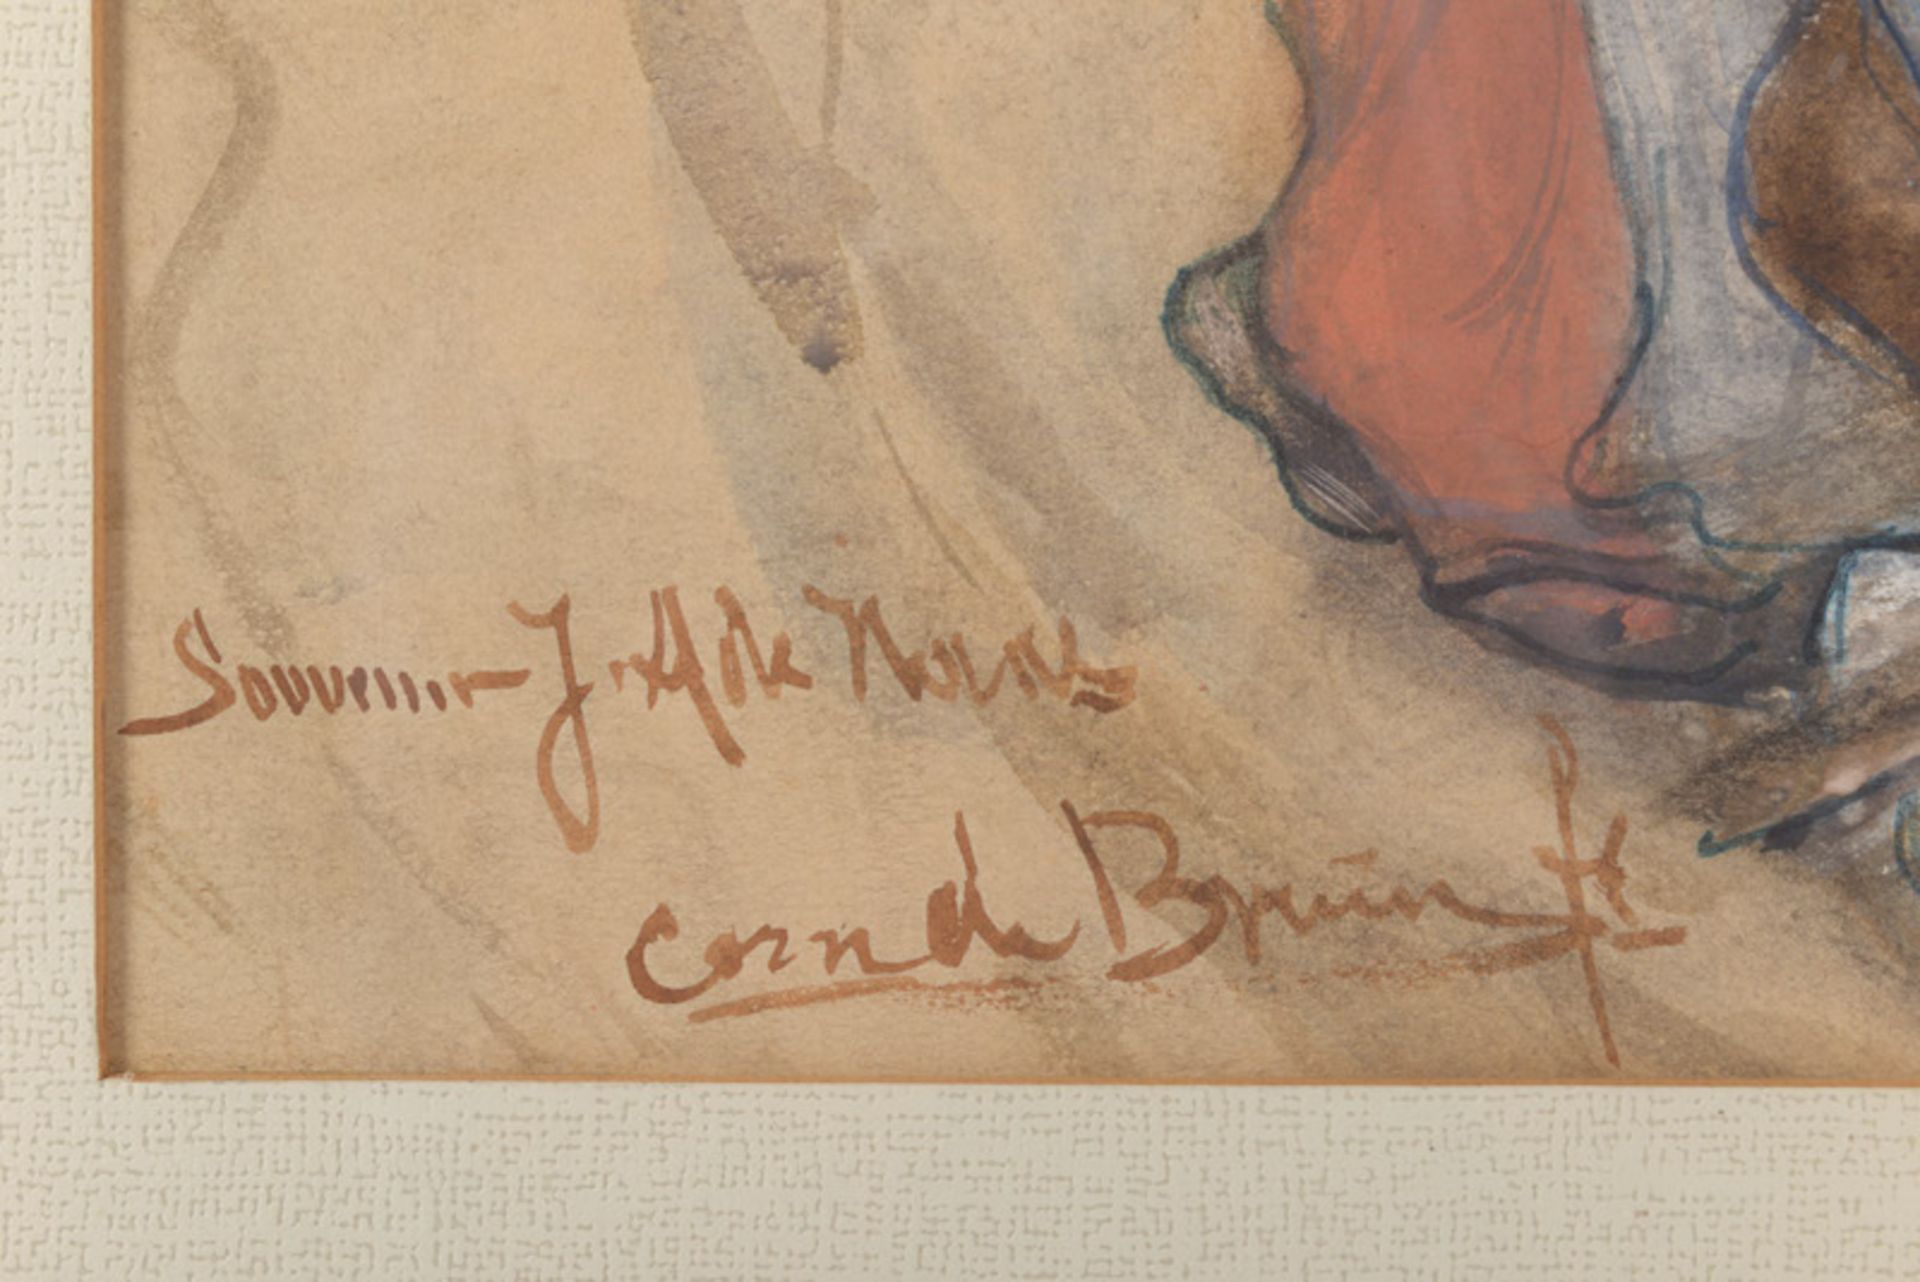 Souvenir J. A. de Naas
Corn de Bruin ft